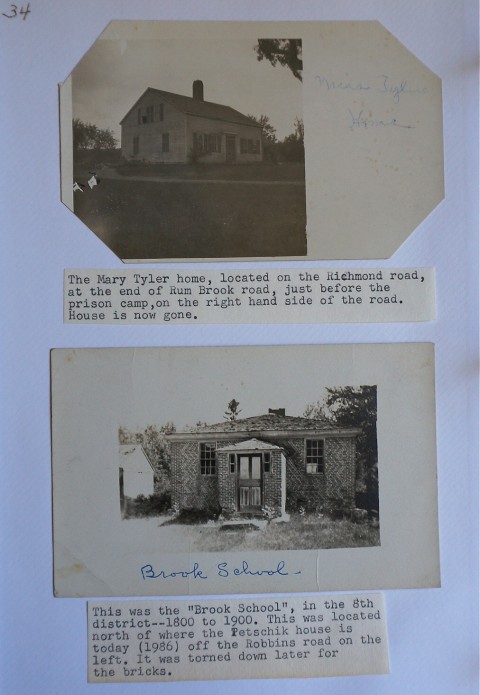 34
Miss Tyler
House
The Mary Tyler home, located on the Richmond road,
at the end of Rum Brook road, just before the
prison camp,on the right hand side of the road.
House is now gone.
Brook School
This was the "Brook School", in the 8th
district--1800 to 1900. This was located
north of where the Petschik house is
today (1986) off the Robbins road on the
left. It was torned down later for
the bricks.